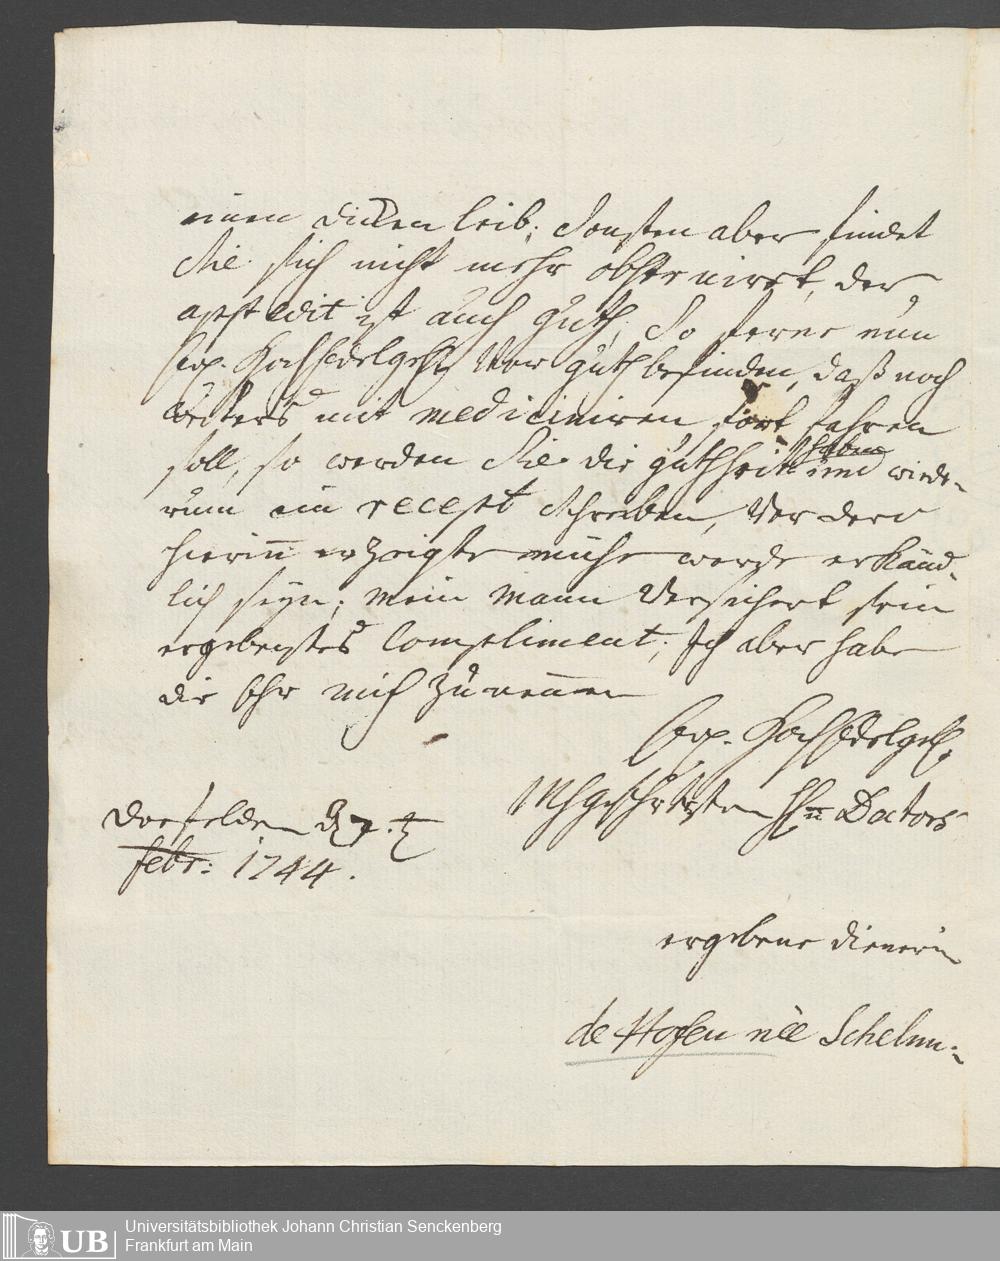 einen dicken leib; Sonsten aber findet
Sie sich nicht mehr obstruirt, der
appetdit ist auch guth, So ferne nun
Ew. HochEdelgeb. Vor guth befinden, daß noch
weiters mit mediciniren fort fahren
soll, so werden Sie die gutheit haben und wiede-
rum ein recept schreiben, Vor dero
hierin erzeigte mühe werde erkänd-
lich seyn; mein Mann Versichert sein
ergebenstes Compliment, Ich aber habe
die Ehr mich zu nennen
Ew. HochEdelgeb.
MhgeEhrtesten Hn Doctors
Dorfelden d 7. t
febr: 1744.
ergebene dienerin
de Hofen née Schelm:
UB
Universitätsbibliothek Johann Christian Senckenberg
Frankfurt am Main